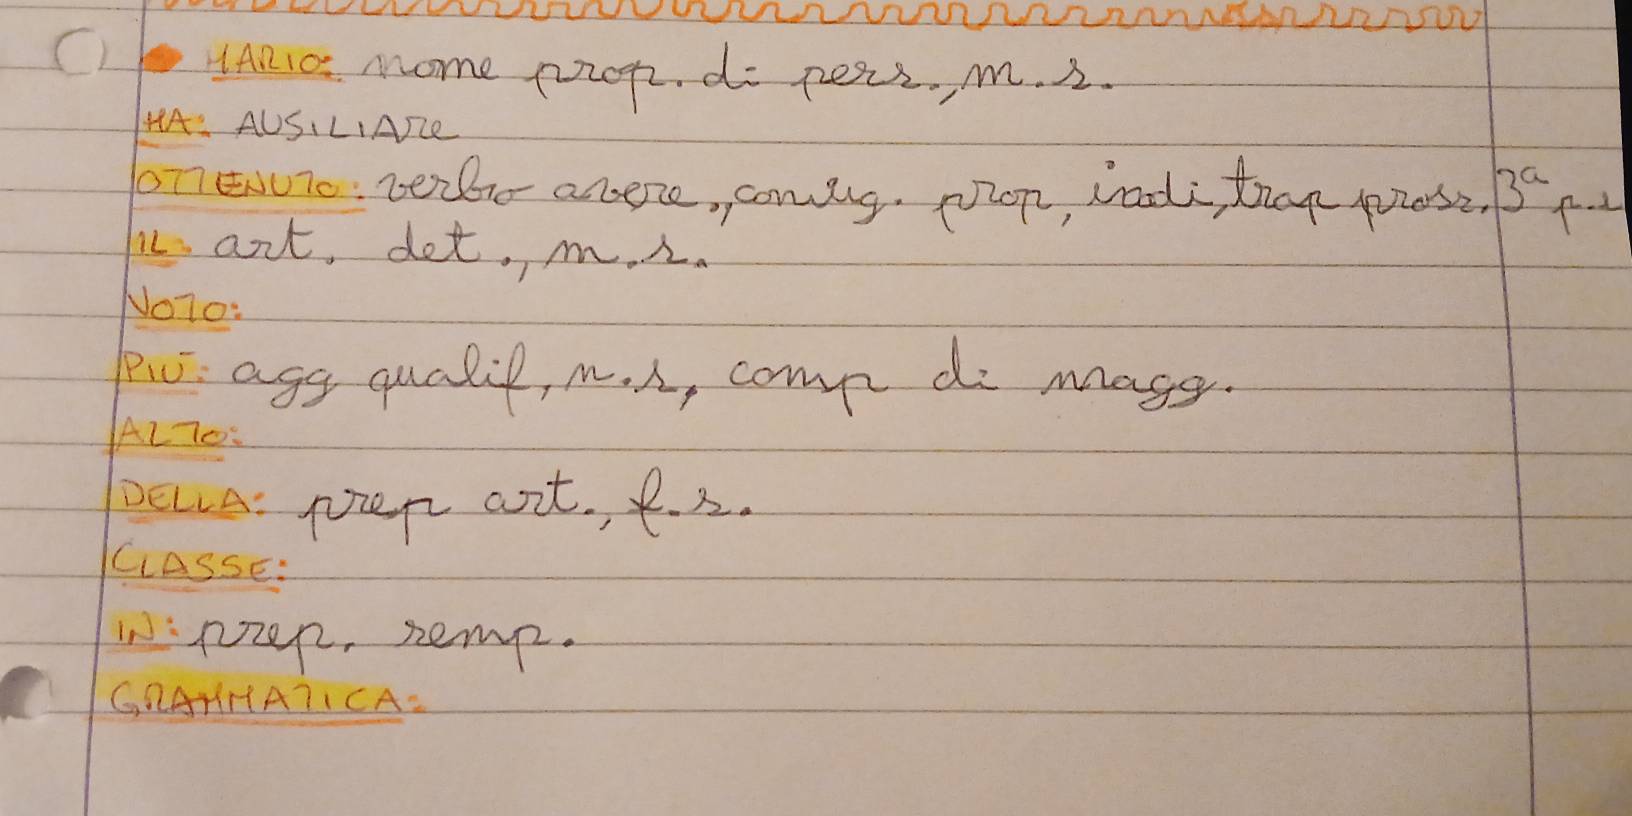 MARIO: nome prop. di pers., m.s.
HA: AUSILIARE
OTTENUTO: verbo avere., coniug. prop, indi, trap pross. 3ª p.s
IL: art. det., m.s.
VOTO:
PIÙ: agg qualif, m.s, comp di magg.
ALTO:
DELLA: prep art., f.s.
CLASSE:
IN: prep. semp.
GRAMMATICA: